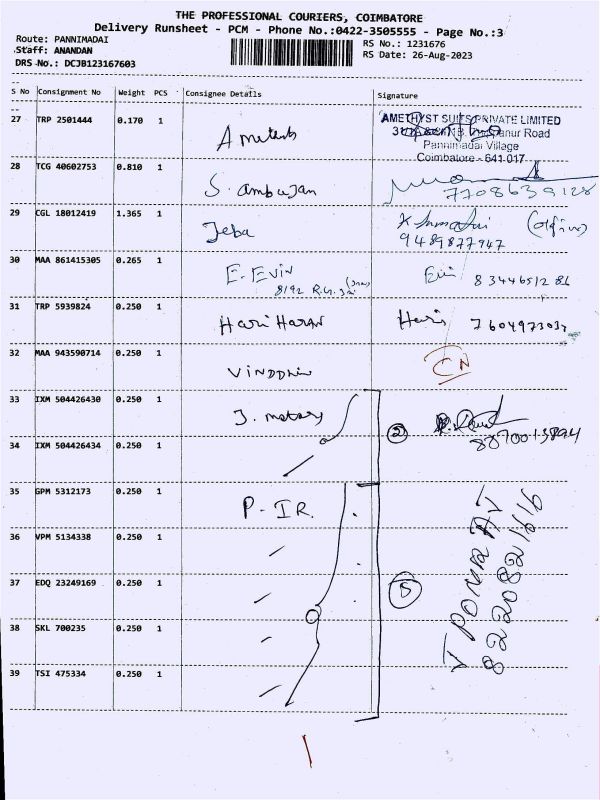 THE PROFESSIONAL COURIERS, COIMBATORE
Delivery Runsheet - PCM - Phone No.:0422-3505555 - Page No.:3
Route: PANNIMADAI
Staff: ANANDAN
DRS No.: DCJB123167603
RS No.: 1231676
RS Date: 26-Aug-2023
S No Consignment No Weight PCS Consignee Details Signature
27 TRP 2501444 0.170 1
AMETHYST SUITS PRIVATE LIMITED
Pannimadai Village
Coimbatore - 641 017
28 TCG 40602753 0.810 1 S. Ambujan
7708639128
29 CGL 18012419 1.365 1 Jeba
9489877947
30 MAA 861415305 0.265 1 E. EVIN
31 TRP 5939824 0.250 1 HARIHARAN Haris
32 MAA 943590714 0.250 1 CN
33 IXM 504426430 0.250 1 J. motors
2
34 IXM 504426434 0.250 1
35 GPM 5312173 0.250 1 P-IR.
36 VPM 5134338 0.250 1
37 EDQ 23249169 0.250 1 5
38 SKL 700235 0.250 1
39 TSI 475334 0.250 1
8220821616